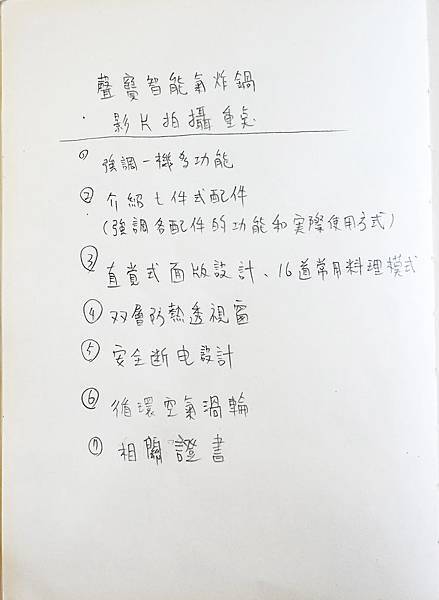 聲寶智能氣炸鍋
·影片拍攝重點
① 強調一機多功能
② 介紹七件式配件
(強調各配件的功能和實際使用方式)
③ 直覚式面版設計、16道常用料理模式
④ 双層防熱透視窗
⑤ 安全断电設計
⑥ 循環空氣渦輪
⑦ 相關證書